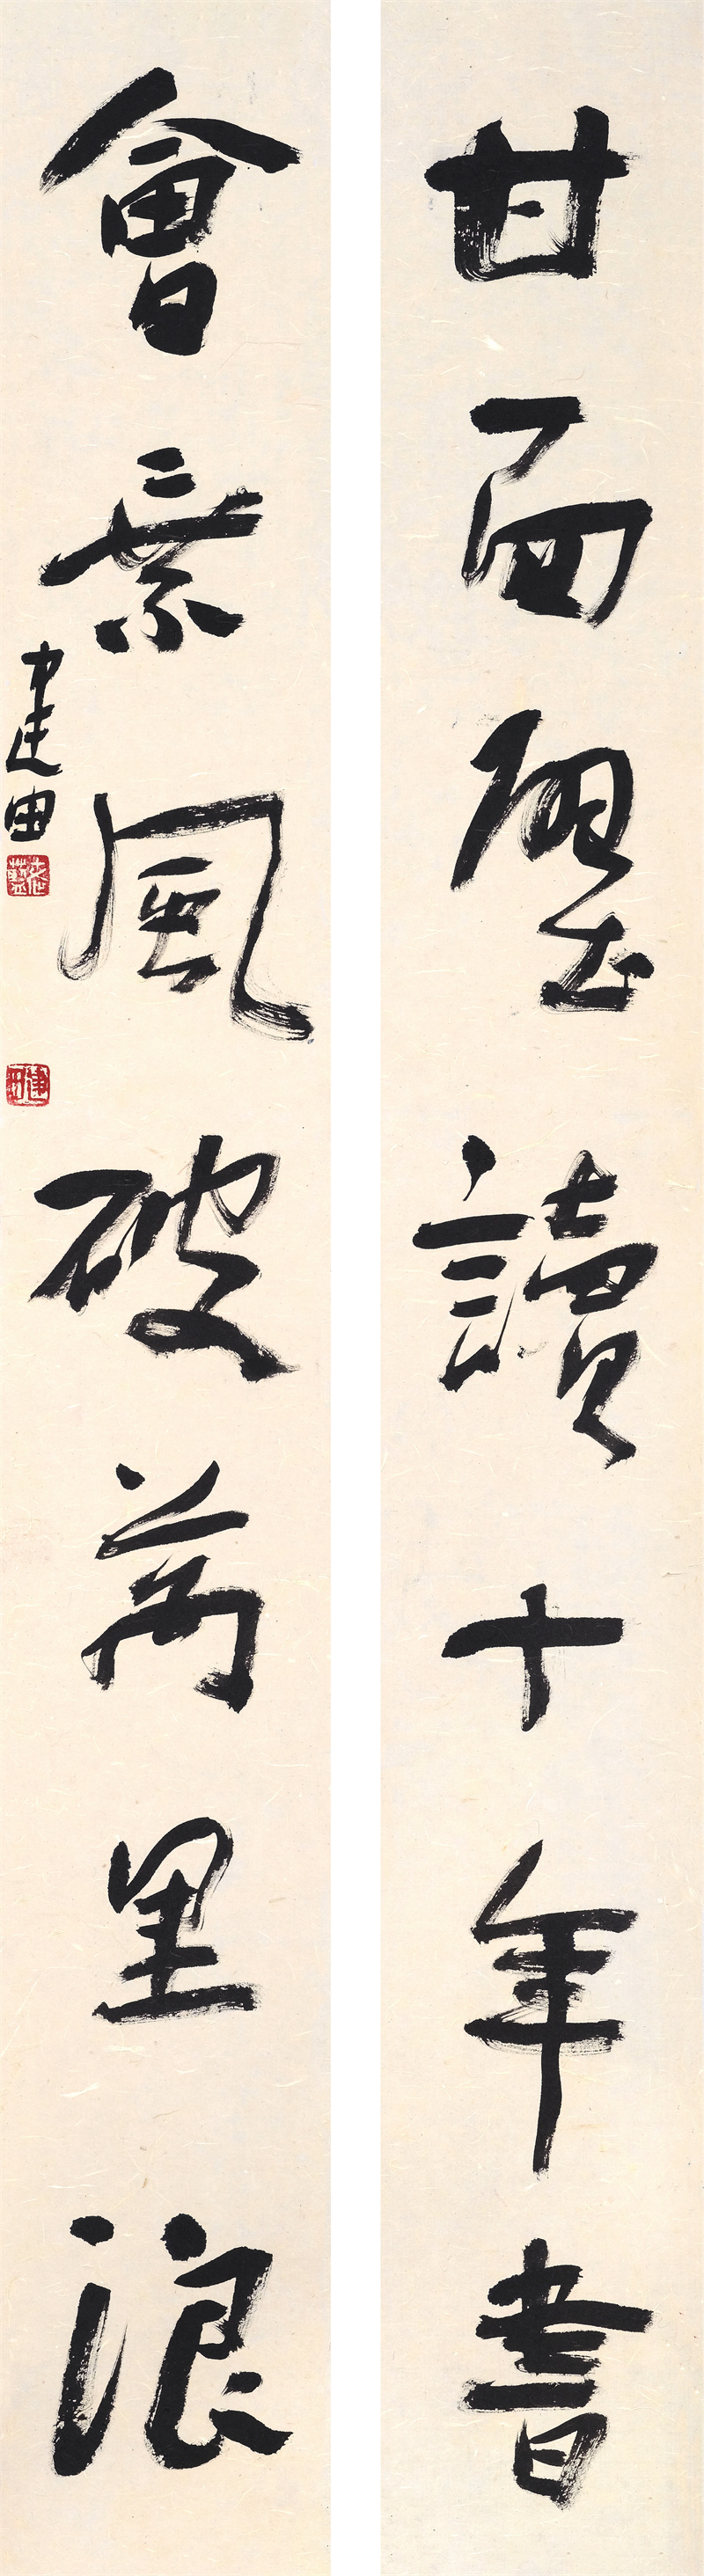 甘面壁讀十年書
會乘風破萬里浪
建田